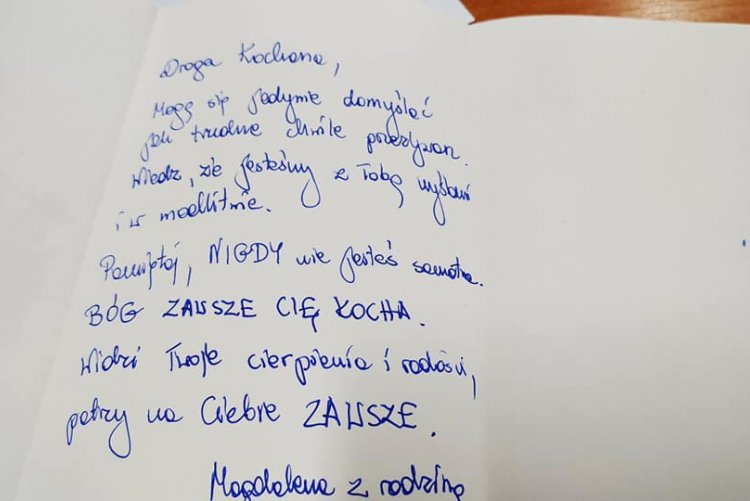 Droga Kochana,
Mogę się jedynie domyślać
jak trudne chwile przeżywasz.
Wiedz, że jesteśmy z Tobą myślami
i w modlitwie.
Pamiętaj, NIGDY nie jesteś samotna.
BÓG ZAWSZE CIĘ KOCHA.
Widzi Twoje cierpienia i radości,
patrzy na Ciebie ZAWSZE.
Magdalena z rodziną